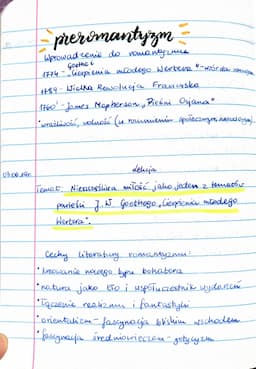 preromantyzm
Wprowadzenie do romantyzmu
Goethe
1774 - "Cierpienia młodego Wertera" -
1789 - Wielka Rewolucja Francuska
1760 - James Macpherson, Pieśni Osjana"
* wrażliwość, wolność (w rozumieniu społecznym, narodowym)
Lekcja
Temat: Nieszczęśliwa miłość jako jeden z tematów
powieści J. W Goethego "Cierpienia młodego
Wertera".
Cechy literatury romantyzmu:
* kreowanie nowego typu bohatera
* natura jako tło i współuczestnik wydarzeń
* łączenie realizmu i fantastyki
* orientalizm - fascynacja bliskim wschodem
* fascynacja średniowieczem - gotycyzm